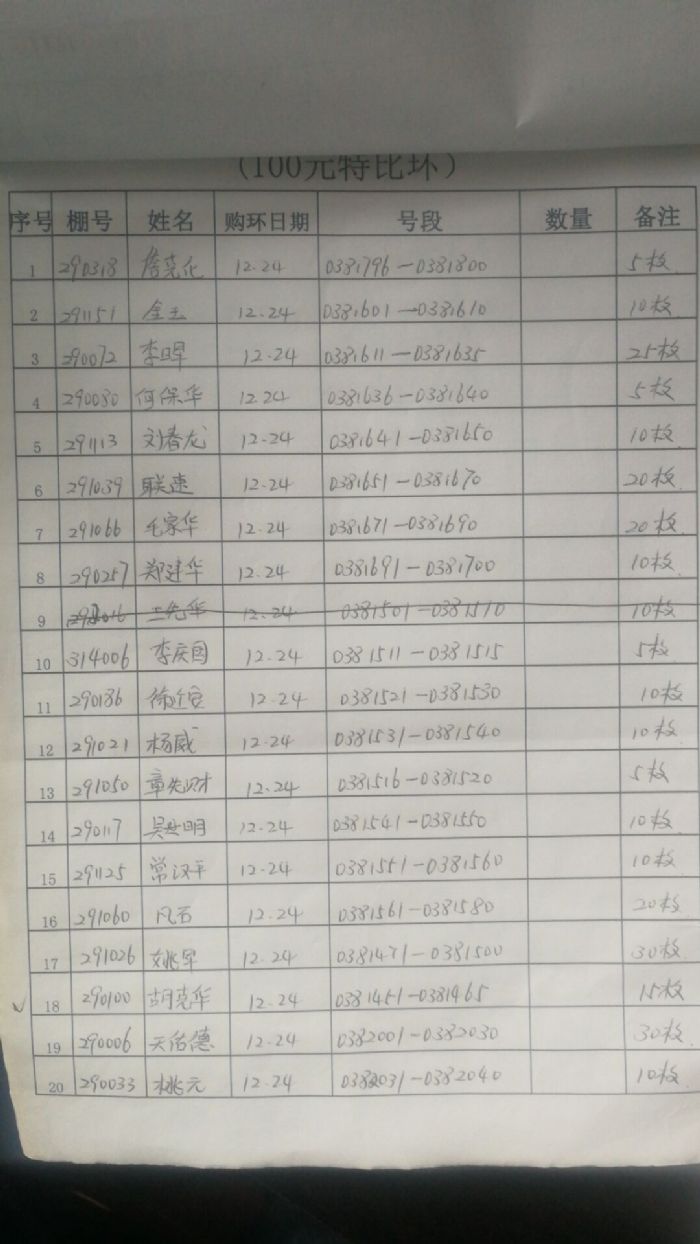 (100元特比环)
序号 棚号 姓名 购环日期 号段 数量 备注
1 290318 詹克化 12.24 0381796—0381800 5枚
2 291151 金玉 12.24 0381601—0381610 10枚
3 290072 李晖 12.24 0381611—0381635 25枚
4 290030 何保华 12.24 0381636—0381640 5枚
5 291113 刘春龙 12.24 0381641—0381650 10枚
6 291039 联速 12.24 0381651—0381670 20枚
7 291066 毛家华 12.24 0381671—0381690 20枚
8 290257 郑建华 12.24 0381691—0381700 10枚
9 12.24 0381501—0381510 10枚
10 314006 李庆国 12.24 0381511—0381515 5枚
11 290186 徐近安 12.24 0381521—0381530 10枚
12 291021 杨威 12.24 0381531—0381540 10枚
13 291050 章先财 12.24 0381516—0381520 5枚
14 290117 吴世明 12.24 0381541—0381550 10枚
15 291125 常汉平 12.24 0381551—0381560 10枚
16 291060 凡石 12.24 0381561—0381580 20枚
17 291026 姚军 12.24 0381471—0381500 30枚
18 290100 胡克华 12.24 0381451—0381465 15枚
19 290006 天佑德 12.24 0382001—0382030 30枚
20 290033 桃元 12.24 0382031—0382040 10枚